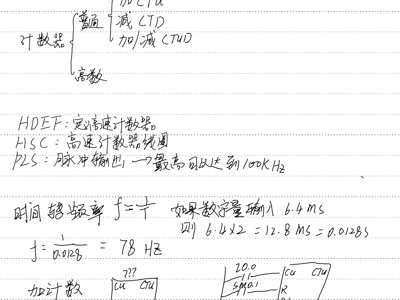 加 CTU
普通
减 CTD
计数器
加/减 CTUD
高数
HDEF:定高速计数器
HSC:高速计数器线圈
PLS:脉冲输出→最高可以达到100KHz
时间 转 频率 f=1/T 如果数字量输入 6.4 ms
则 6.4x2 =12.8 ms=0.0128s
f=1/0.0128 = 78 Hz
加计数
???
CU CTU
I0.0
CU CTU
R